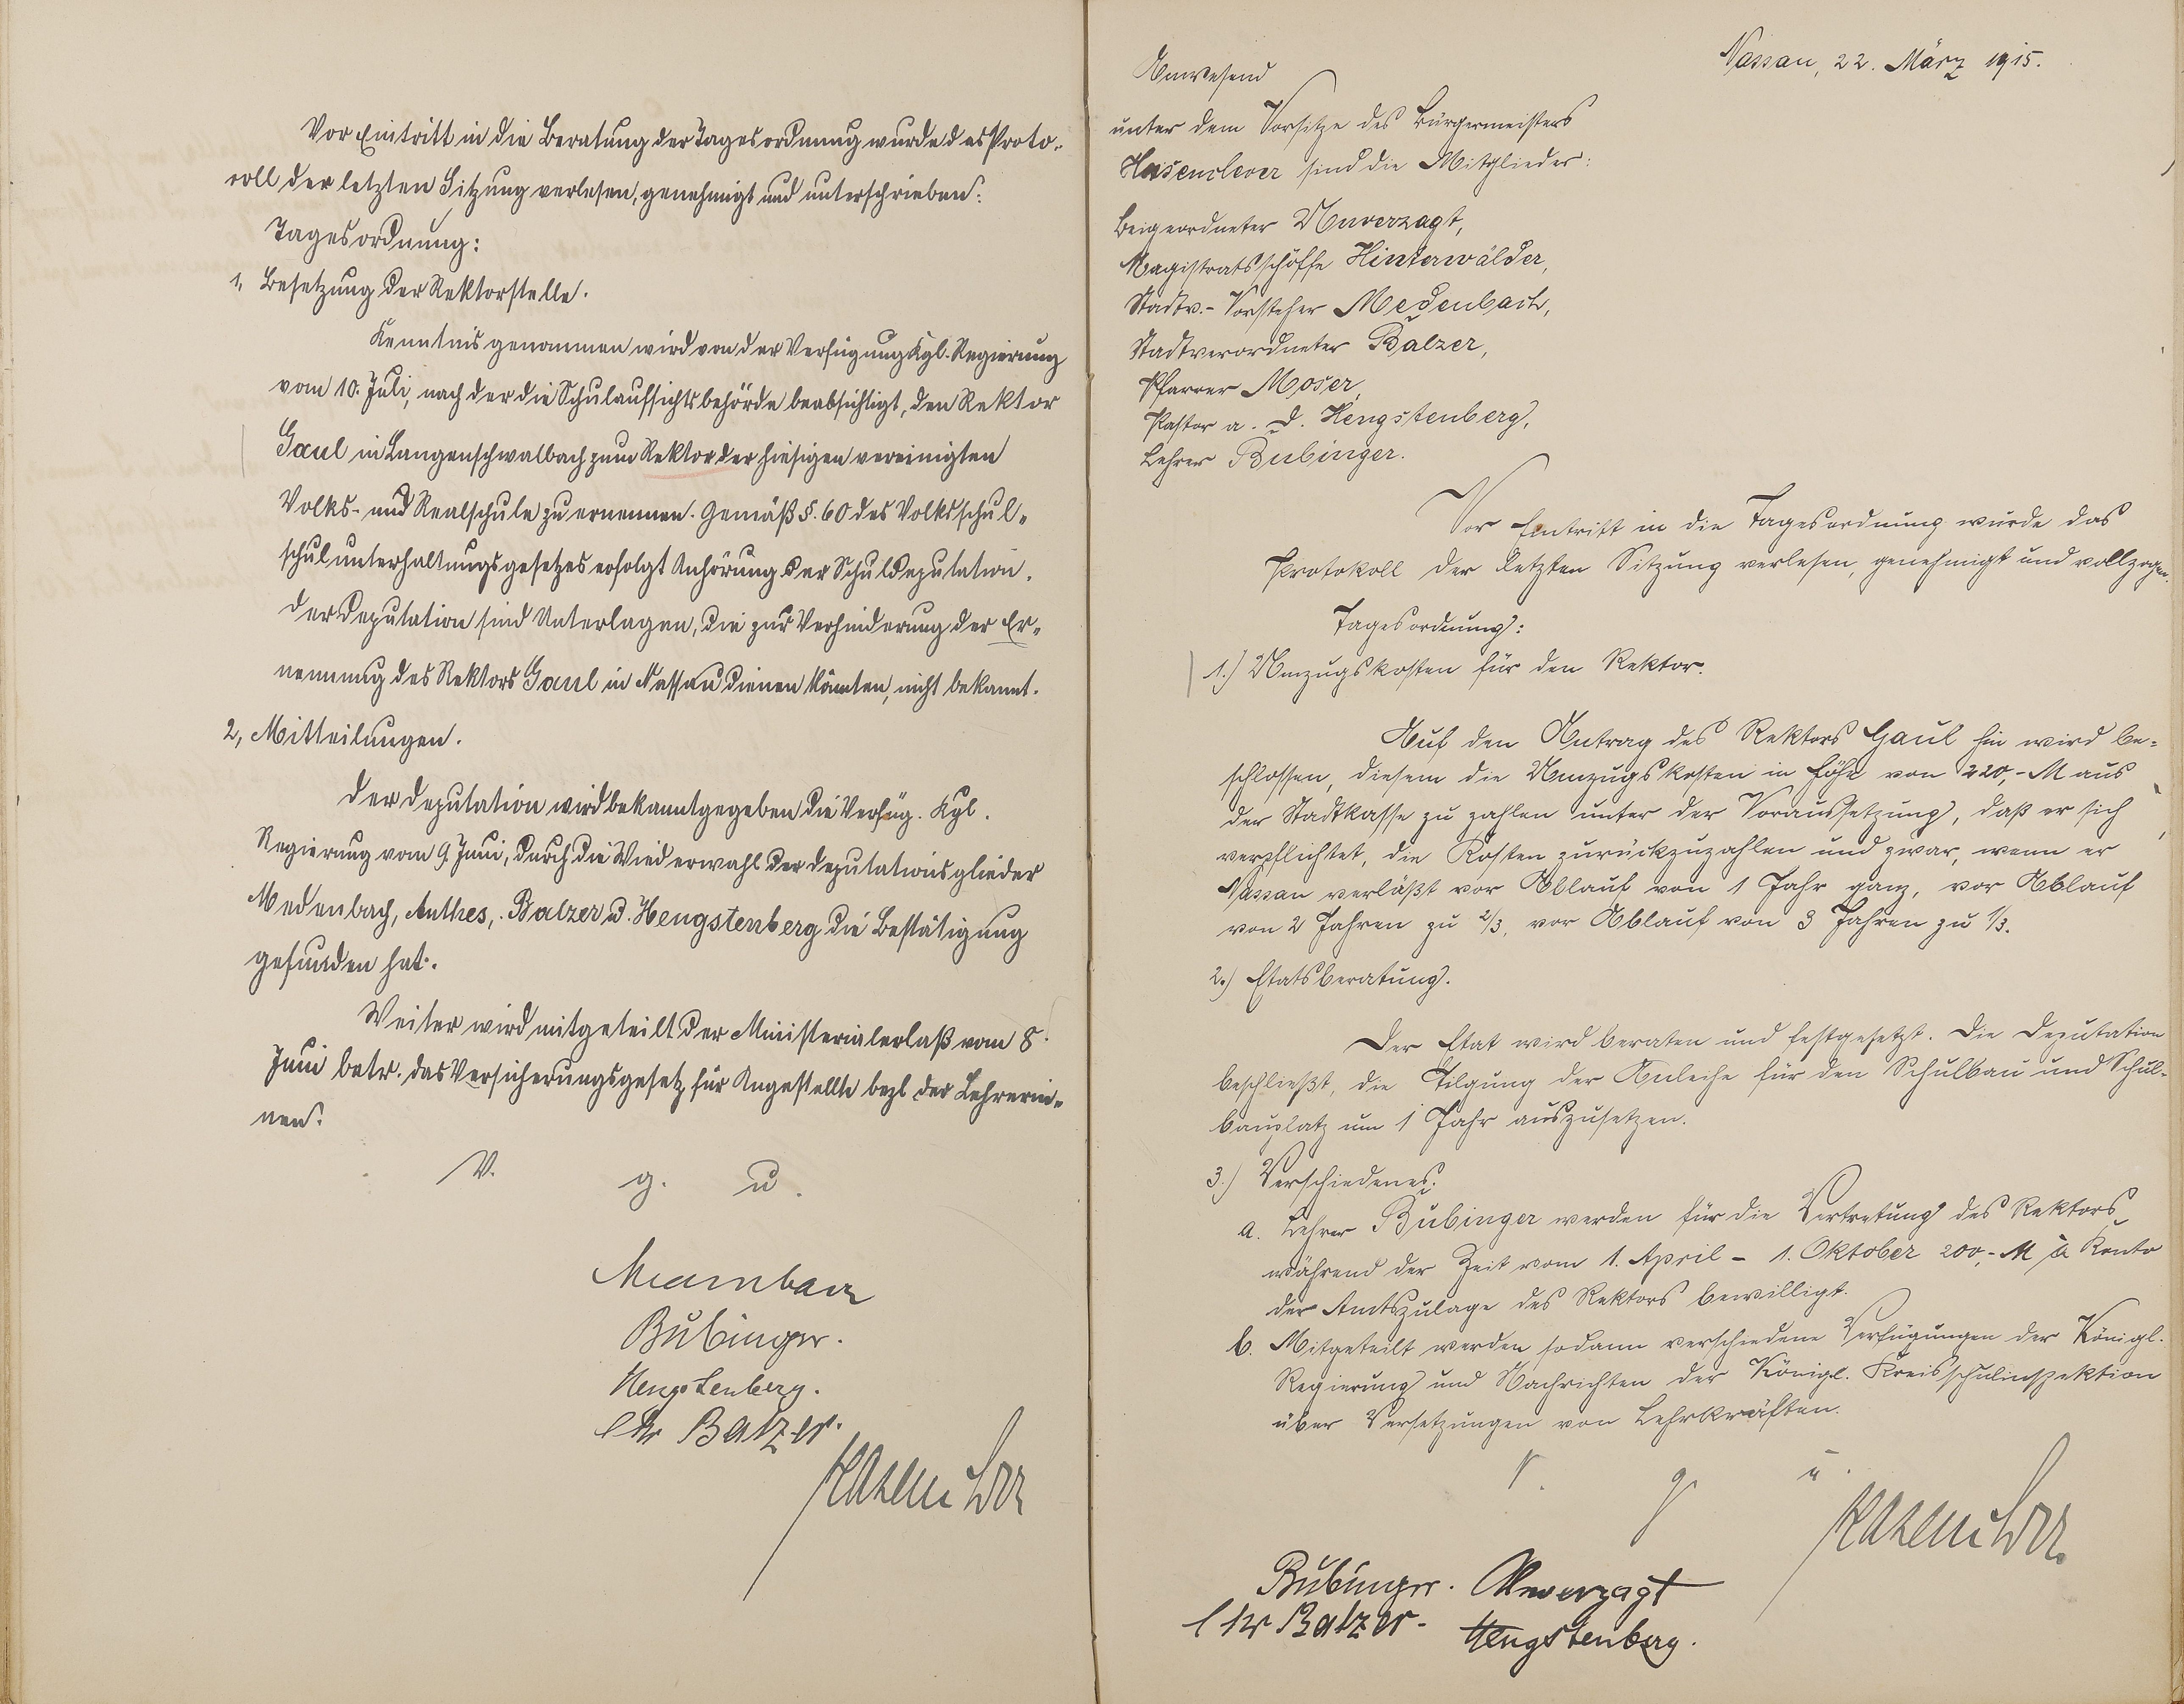 Vor Eintritt in die Beratung der Tagesordnung wurde das Proto-
coll der letzten Sitzung verlesen, genehmigt und unterschrieben.
Tagesordnung:
1, Besetzung der Rektorstelle.
Kenntnis genommen wird von der Verfügung Kgl. Regierung
vom 10. Juli, nach der die Schulaufsichtsbehörde beabsichtigt, den Rektor
Gaul in Langenschwalbach zum Rektor der hiesigen vereinigten
Volks- und Realschule zu ernennen. Gemäß §. 60 des Volksschul-
schulunterhaltungsgesetzes erfolgt Anhörung der Schuldeputation.
Der Deputation sind Unterlagen, die zur Verhinderung der Er-
nennung des Rektors Gaul in Nassau dienen könnten, nicht bekannt.
2, Mitteilungen.
Der Deputation wird bekanntgegeben die Verfüg. Kgl.
Regierung vom 9. Juni, durch die Wiederwahl der Deputationsglieder
Medenbach, Anthes, Balzer u. Hengstenberg die Bestätigung
gefunden hat.
Weiter wird mitgeteilt der Ministerialerlaß vom 8.
Juni betr. das Versicherungsgesetz für Angestellte bezl der Lehrerin-
nen.
V. g. u.
Medenbach
Bubinger.
Hengstenberg.
Chr Balzer.
Hasenclever
Nassau, 22. März 1915.
Anwesend
unter dem Vorsitze des Bürgermeisters
Hasenclever sind die Mitglieder:
Beigeordneter Unverzagt,
Magistratsschöffe Hinterwälder,
Stadtv.- Vorsteher Medenbach,
Stadtverordneter Balzer,
Pfarrer Moser,
Pastor a. D. Hengstenberg,
Lehrer Bubinger.
Vor Eintritt in die Tagesordnung wurde das
Protokoll der letzten Sitzung verlesen, genehmigt und vollzogen.
Tagesordnung:
1.) Umzugskosten für den Rektor.
Auf den Antrag des Rektors Gaul hin wird be-
schlossen, diesem die Umzugskosten in Höhe von 220,- M aus
der Stadtkasse zu zahlen unter der Voraussetzung, daß er sich
verpflichtet, die Kosten zurückzuzahlen und zwar, wenn er
Nassau verläßt vor Ablauf von 1 Jahr ganz, vor Ablauf
von 2 Jahren zu 2/3, vor Ablauf von 3 Jahren zu 1/3.
2.) Etatsberatung.
Der Etat wird beraten und festgesetzt. Die Deputation
beschließt, die Tilgung der Anleihe für den Schulbau und Schul-
bauplatz um 1 Jahr auszusetzen.
3.) Verschiedenes.
a. Lehrer Bubinger werden für die Vertretung des Rektors
während der Zeit vom 1. April - 1. Oktober 200,- M à Konto
der Amtszulage des Rektors bewilligt.
b. Mitgeteilt werden sodann verschiedene Verfügungen der Königl.
Regierung und Nachrichten der Königl. Kreisschulinspektion
über Versetzungen von Lehrkräften.
v. g. u.
Hasenclever
Bubinger. Unverzagt
Chr Balzer. Hengstenberg.